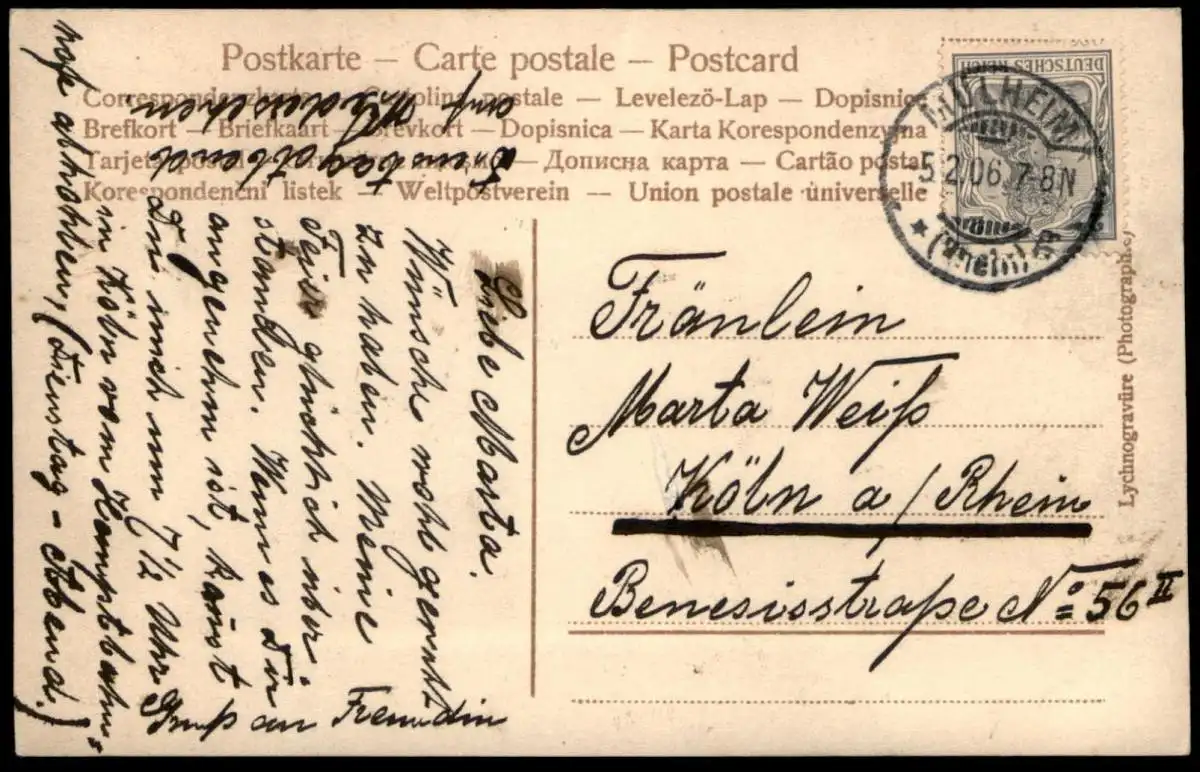 Postkarte — Carte postale — Postcard
Correspondenzkarte — Cartolina postale — Levelező-Lap — Dopisnice
Brefkort — Briefkaart — Brevkort — Dopisnica — Karta Korespondenzyjna
Tarjeta postal — — Дописна карта — Cartão postal
Korespondenčni listek — Weltpostverein — Union postale universelle
DEUTSCHES REICH
MÜLHEIM
5.2.06.7-8N
(Rhein)
Fräulein
Marta Weiß
Köln a/Rhein
Benesisstraße No 56 II
Lychnogravüre (Photographie)
Liebe Marta.
Wünsche wohl geruht
zu haben. Meine
glücklich über
standen. Wenn es Dir
angenehm ist, kannst
Du mich um 7½ Uhr
in Köln vom Hauptbahn
hof abholen, (Dienstag-Abend.)
Gruß an Freundin
auf Wiedersehen.
Dienstag Abend